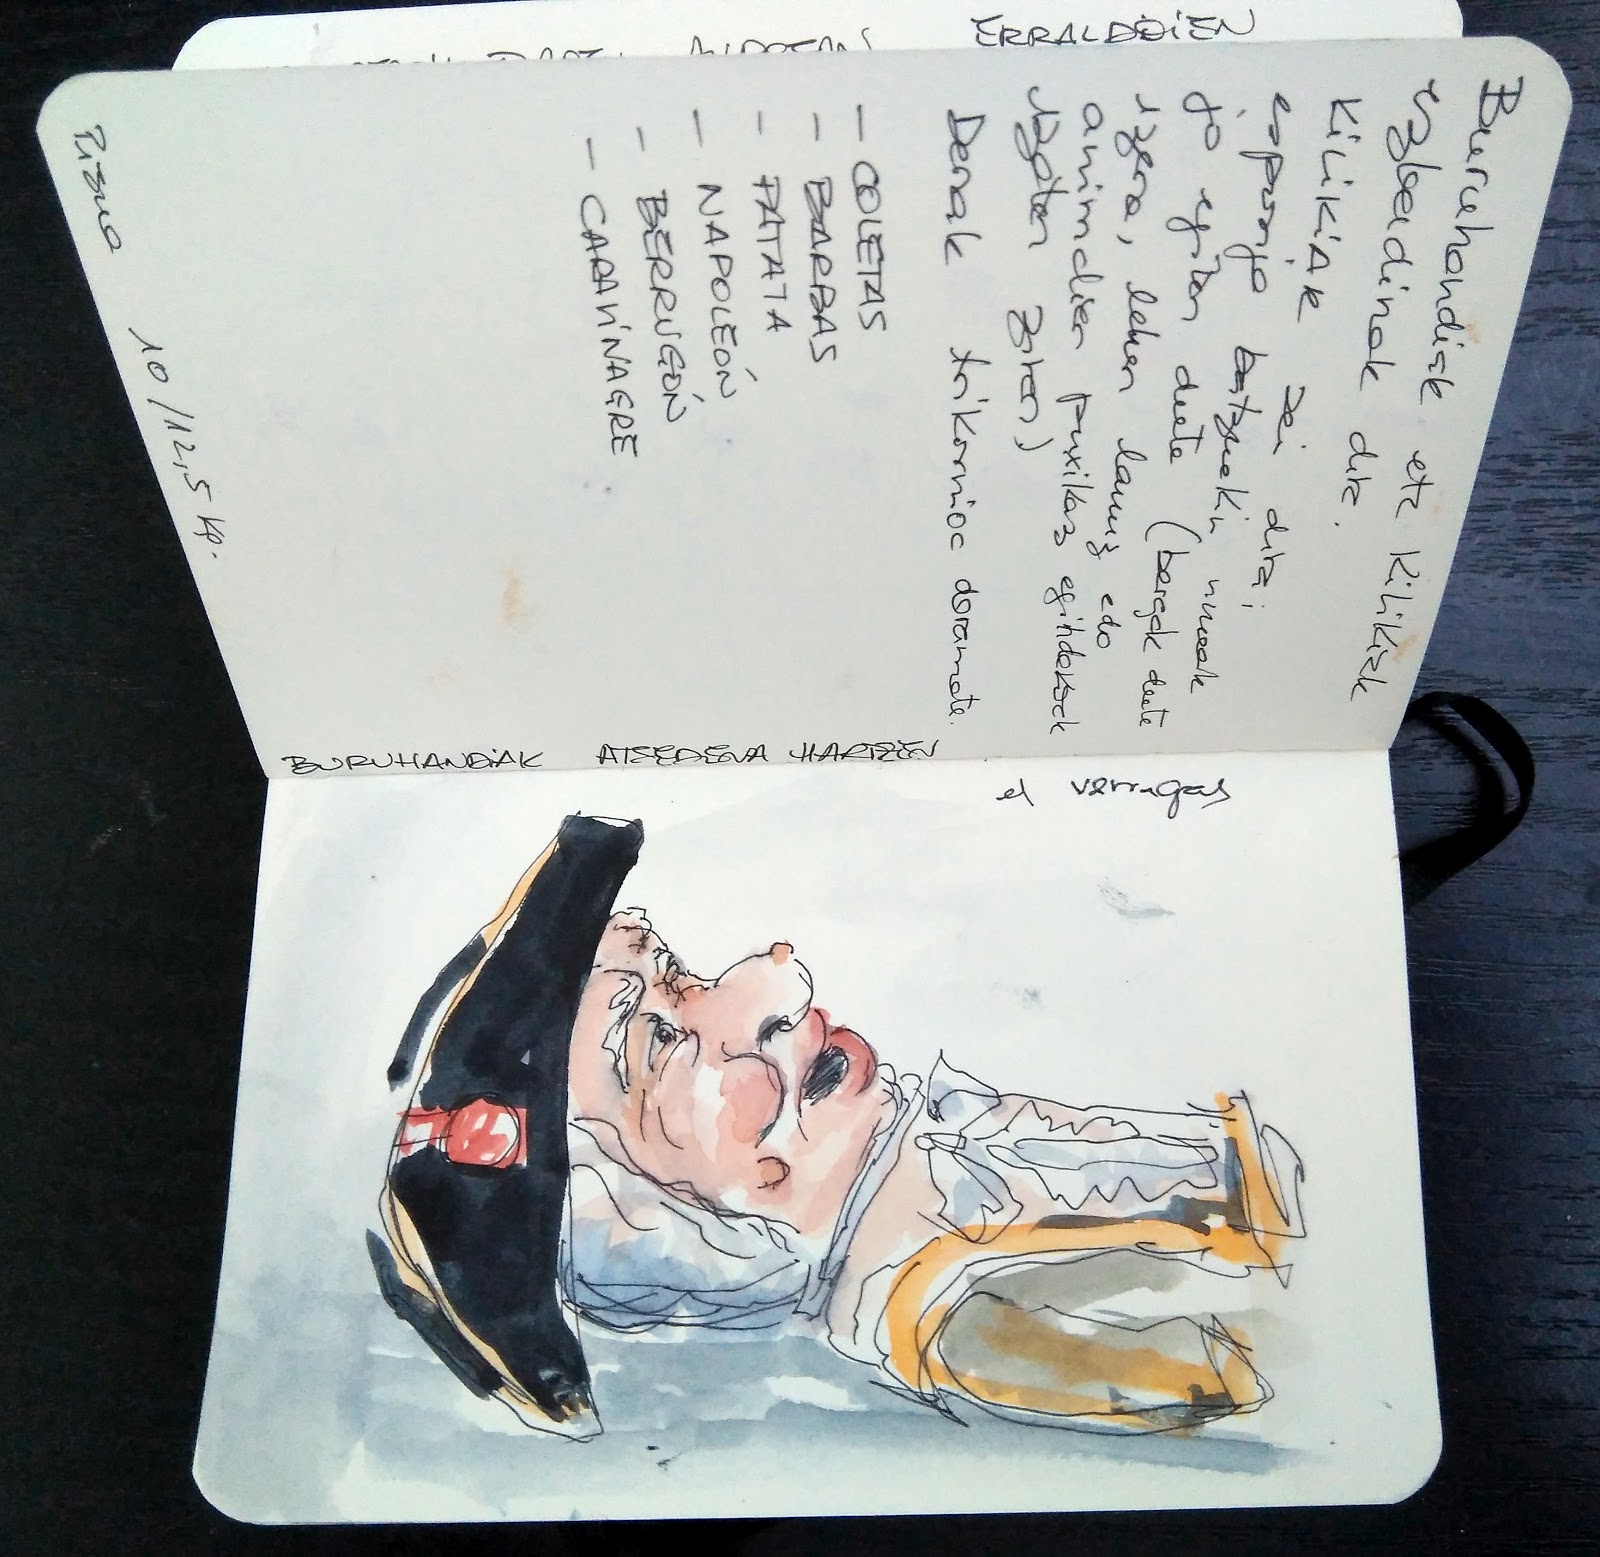 ERRALDOIEN
Buruhandiak eta Kilikiak
ezberdinak dira.
Kilikiak sei dira;
esponja batzuekin umeak
jo egiten dute (berezak dute
izena, lehen larruz edo
animalien puxikaz egindakoak
izaten ziren)
Denak trikornioc daramate.
- COLETAS
- BARBAS
- PATATA
- NAPOLEÓN
- BERRUGÓN
- CARAVINAGRE
Pisua 10/12,5 kg.
BURUHANDIAK ATSEDENA HARTZEN
el verrugas